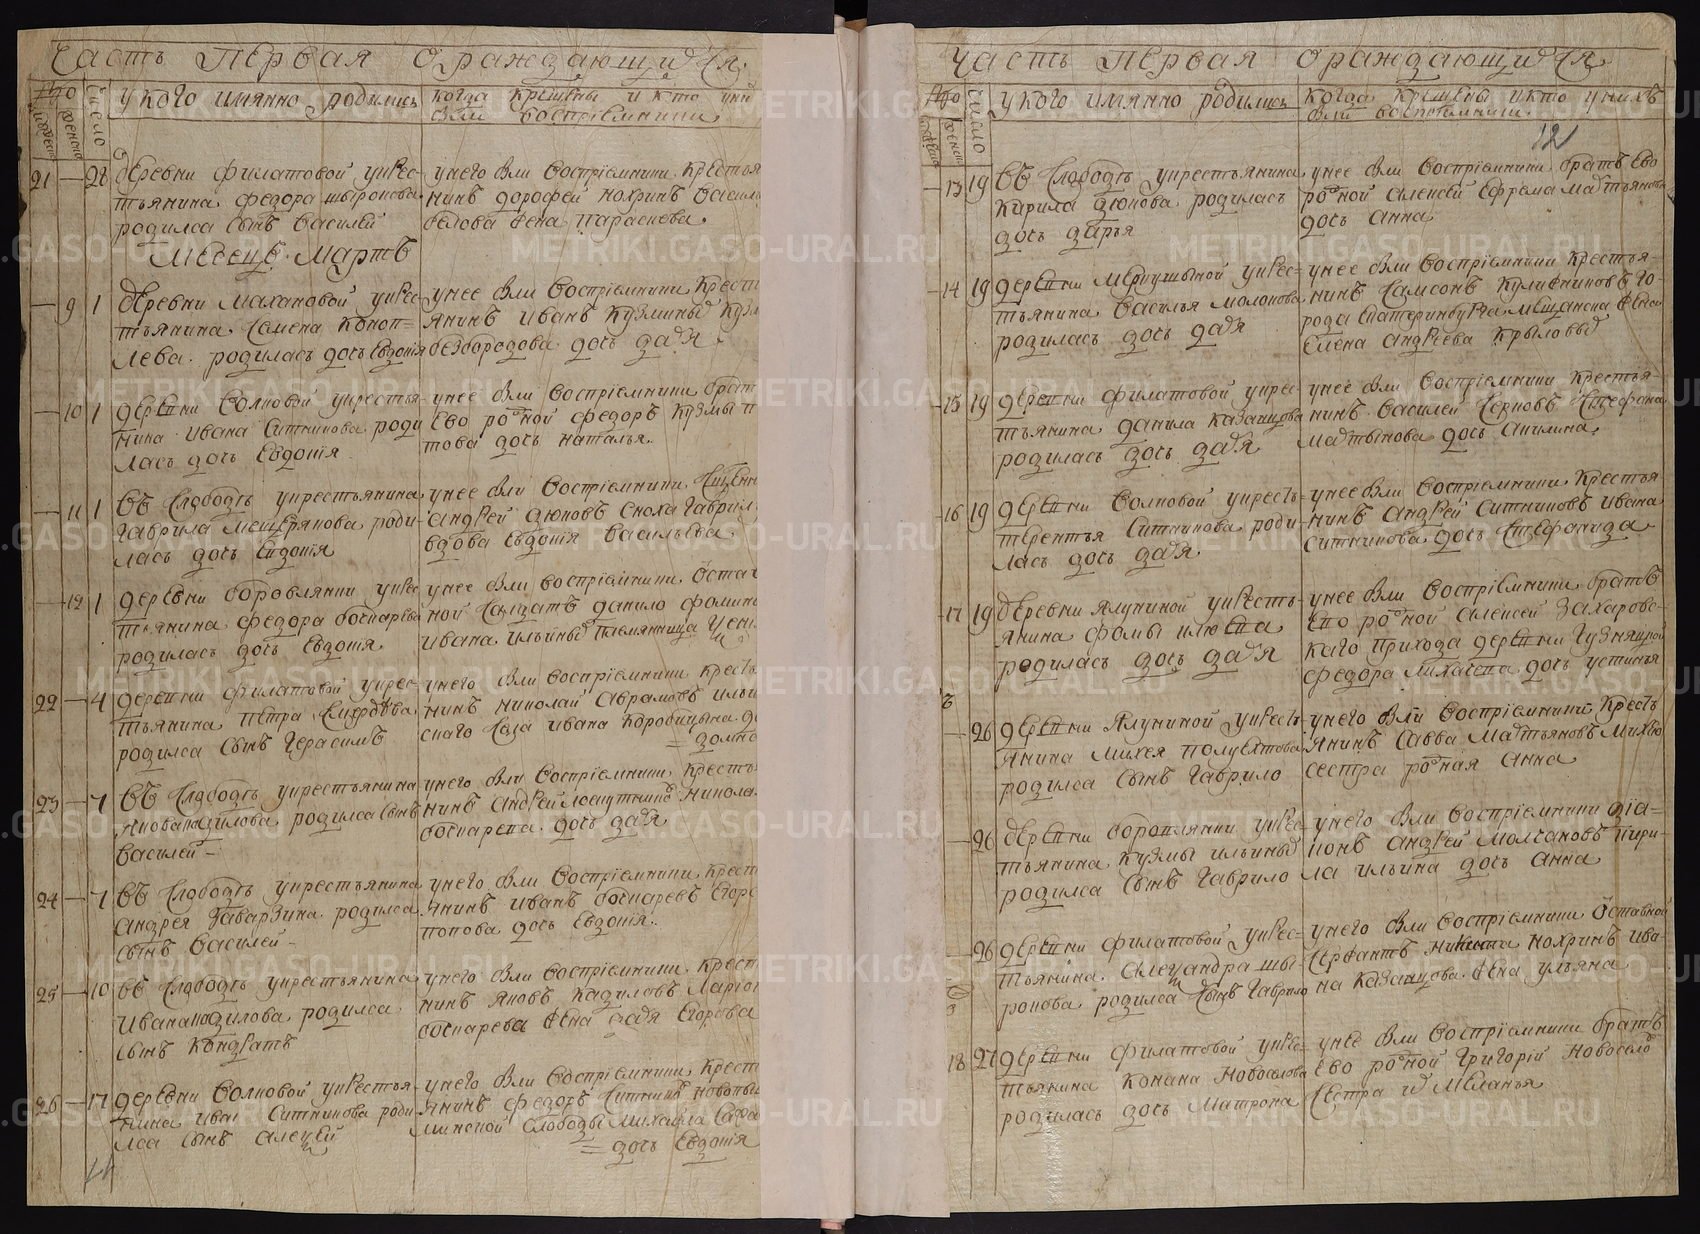 Часть Первая О раждающихся
число
у кого имянно родились
когда крещены и кто у них
были восприемники
21 — 28 деревни филатовой у крес-
тьянина федора широнова
родился сынъ василей
у него были восприемники крестья
нинъ дорофей Нохринъ василь
жена параскева
Месецъ Мартъ
— 9 1 деревни Махановой у крес-
тьянина Семена Коноп=
лева родилась дочь евдокия
у нее были восприемники крестъ
янинъ иванъ кузминыхъ
безбородова дочь дарья
— 10 1 деревни волковой у крестья
нина ивана Ситникова роди
лась дочь евдокия
у нее были восприемники братъ
ево родной федоръ кузмы
това дочь наталья
— 11 1 въ слободъ у крестьянина
гаврила мещерякова роди-
лась дочь евдокия
у нее были восприемники
андрей дюковъ сноха гаврил
вдова евдокия васильева
— 12 1 деревни боровлянки у крес
тьянина федора бочкарева
родилась дочь евдокия
у нее были восприемники отстав
ной солдатъ данило фомин
ивана ильиныхъ племянница
22 — 4 деревни филатовой у крес-
тьянина петра
родился сынъ герасимъ
у него были восприемники кресть
нинъ николай аврамовъ ильин
скаго села ивана коробицына
23 — 7 въ слободъ у крестьянина
якова кадилова родился сынъ
василей —
у него были восприемники кресть
нинъ андрей лоскутниковъ никола
бочкарева дочь дарья
24 — 7 въ слободъ у крестьянина
андрея гаварзина родился
сынъ василей —
у него были восприемники крест
янинъ иванъ бочкаревъ егор
попова дочь евдокия
25 — 10 въ слободъ у крестьянина
ивана кадилова родился
сынъ кондратъ
у него были восприемники крест
нинъ яковъ кадиловъ
бочкарева жена дарья егорова
26 — 17 деревни волковой у крестья
нина иван Ситникова роди
лся сынъ алексей
у него были восприемники крест
янинъ федоръ Ситник новопы
шминской слободы михаила
= дочь евдокия
Часть Первая О раждающихся
число
у кого имянно родились
когда крещены и кто у нихъ
были восприемники
12
— 13 19 въ слободъ у крестьянина
кирила дюкова родилась
дочь дарья
у нее были восприемники братъ ево
родной алексей ефрема мартьянова
дочь анна
— 14 19 деревни Мернушиной у крес-
тьянина василья молокова
родилась дочь дарья
у нее были восприемники крестья-
нинъ Самсонъ куликниковъ го-
рода екатеринбурга мещанска жена
елена андреева крыловых
— 15 19 деревни филатовой у крес-
тьянина данила казанцова
родилась дочь дарья
у нее были восприемники крестья-
нинъ василей стефана
мартынова дочь акилина
— 16 19 деревни волковой у кресть-
терентья Ситникова роди-
лась дочь дарья
у нее были восприемники крестья
нинъ андрей ситниковъ ивана
ситникова дочь стефанида
— 17 19 деревни ялуниной у кресть-
янина фомы илюева
родилась дочь дарья
у нее были восприемники братъ
ево родной алексей захаровс-
каго прихода деревни гузняцкой
федора михалева дочь устинья
— 26 деревни ялуниной у кресть-
янина михея полуехтова
родился сынъ гаврило
у него были восприемники кресть
янинъ савва мартьяновъ михею
сестра родная анна
— 26 деревни боровлянки у крес-
тьянина кузмы ильиныхъ
родился сынъ гаврило
у него были восприемники диа=
конъ андрей молчановъ кири-
ла ильина дочь анна
— 26 деревни филатовой у крес-
тьянина александра ши-
ронова родился сынъ гаврило
у него были восприемники оставной
сержантъ никита нохринъ ива-
на казанцова жена ульяна
18 27 деревни филатовой у крес-
тьянина конана новоселова
родилась дочь матрона
у нее были восприемники братъ
ево родной григорий новоселов
сестра их меланья
METRIKI.GASO-URAL.RU